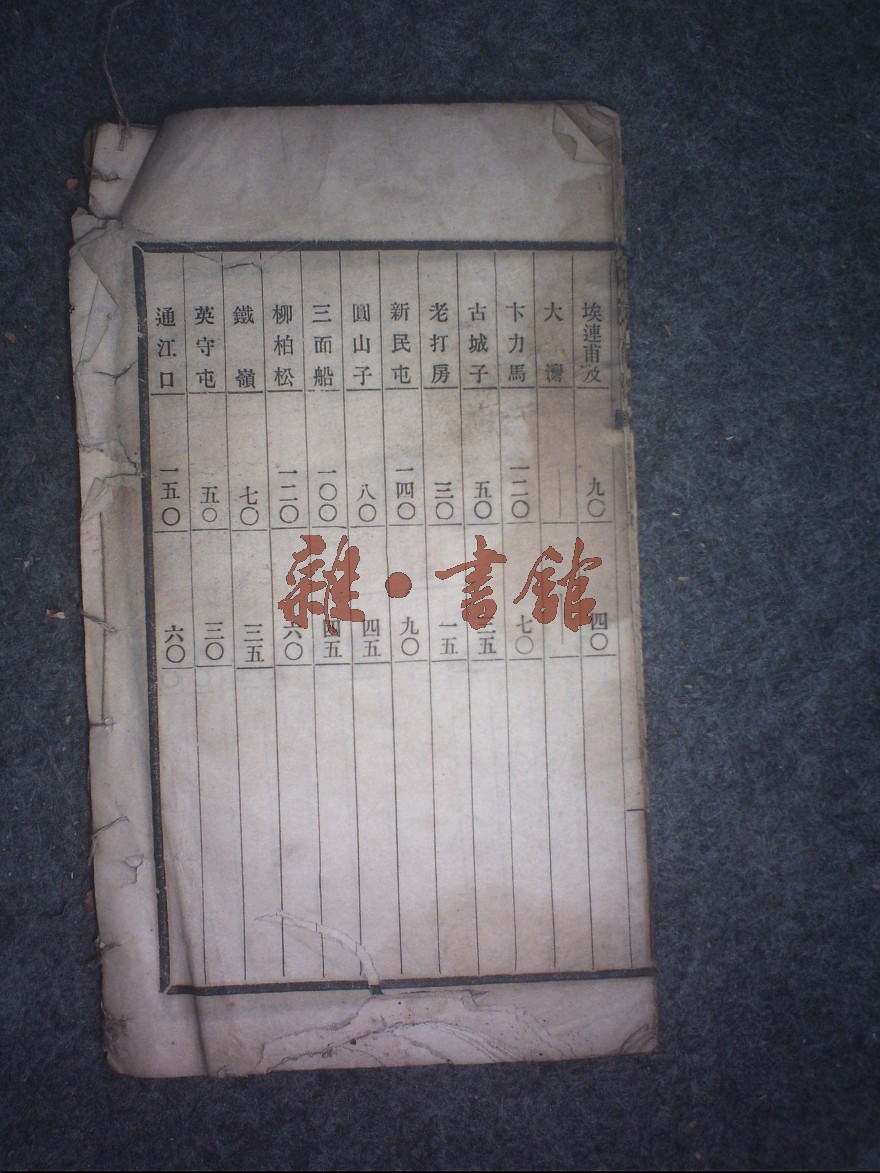 埃連甫及 九〇 四〇
大灣 — —
卞力馬 一二〇 七〇
古城子 五〇 三五
老打房 三〇 一五
新民屯 一四〇 九〇
圓山子 八〇 四五
三面船 一〇〇 四五
柳柏松 一二〇 六〇
鐵嶺 七〇 三五
英守屯 五〇 三〇
通江口 一五〇 六〇
雜·書館